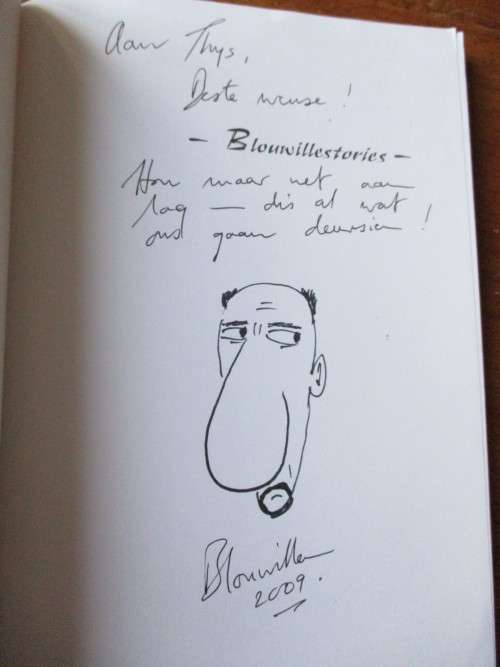 Aan Thys,
Beste wense!
- Blouwillestories -
Hou maar net aan
lag — dis al wat
ons gaan deursien!
Blouwillem
2009.